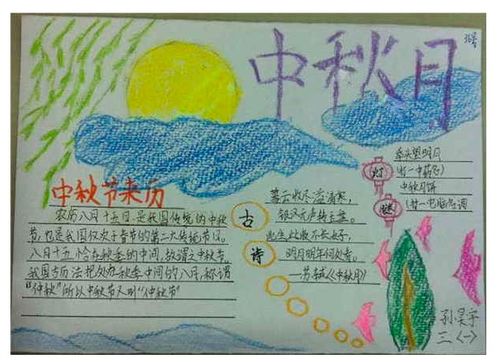 中秋月
中秋节来历
农历八月十五日是我国传统的中秋
节,也是我国仅次于春节的第二大传统节日。
八月十五恰在秋季的中间,故谓之中秋节。
我国古历法把处在秋季中间的八月,称谓
"仲秋"所以中秋节又叫"仲秋节"
古
诗
暮云收尽溢清寒,
银汉无声转玉盘。
此生此夜不长好,
明月明年何处看。
—苏轼《中秋月》
灯
谜
举头望明月
(出一中药名)
中秋月饼
(廿一电脑名词
孙昊宇
三(一)